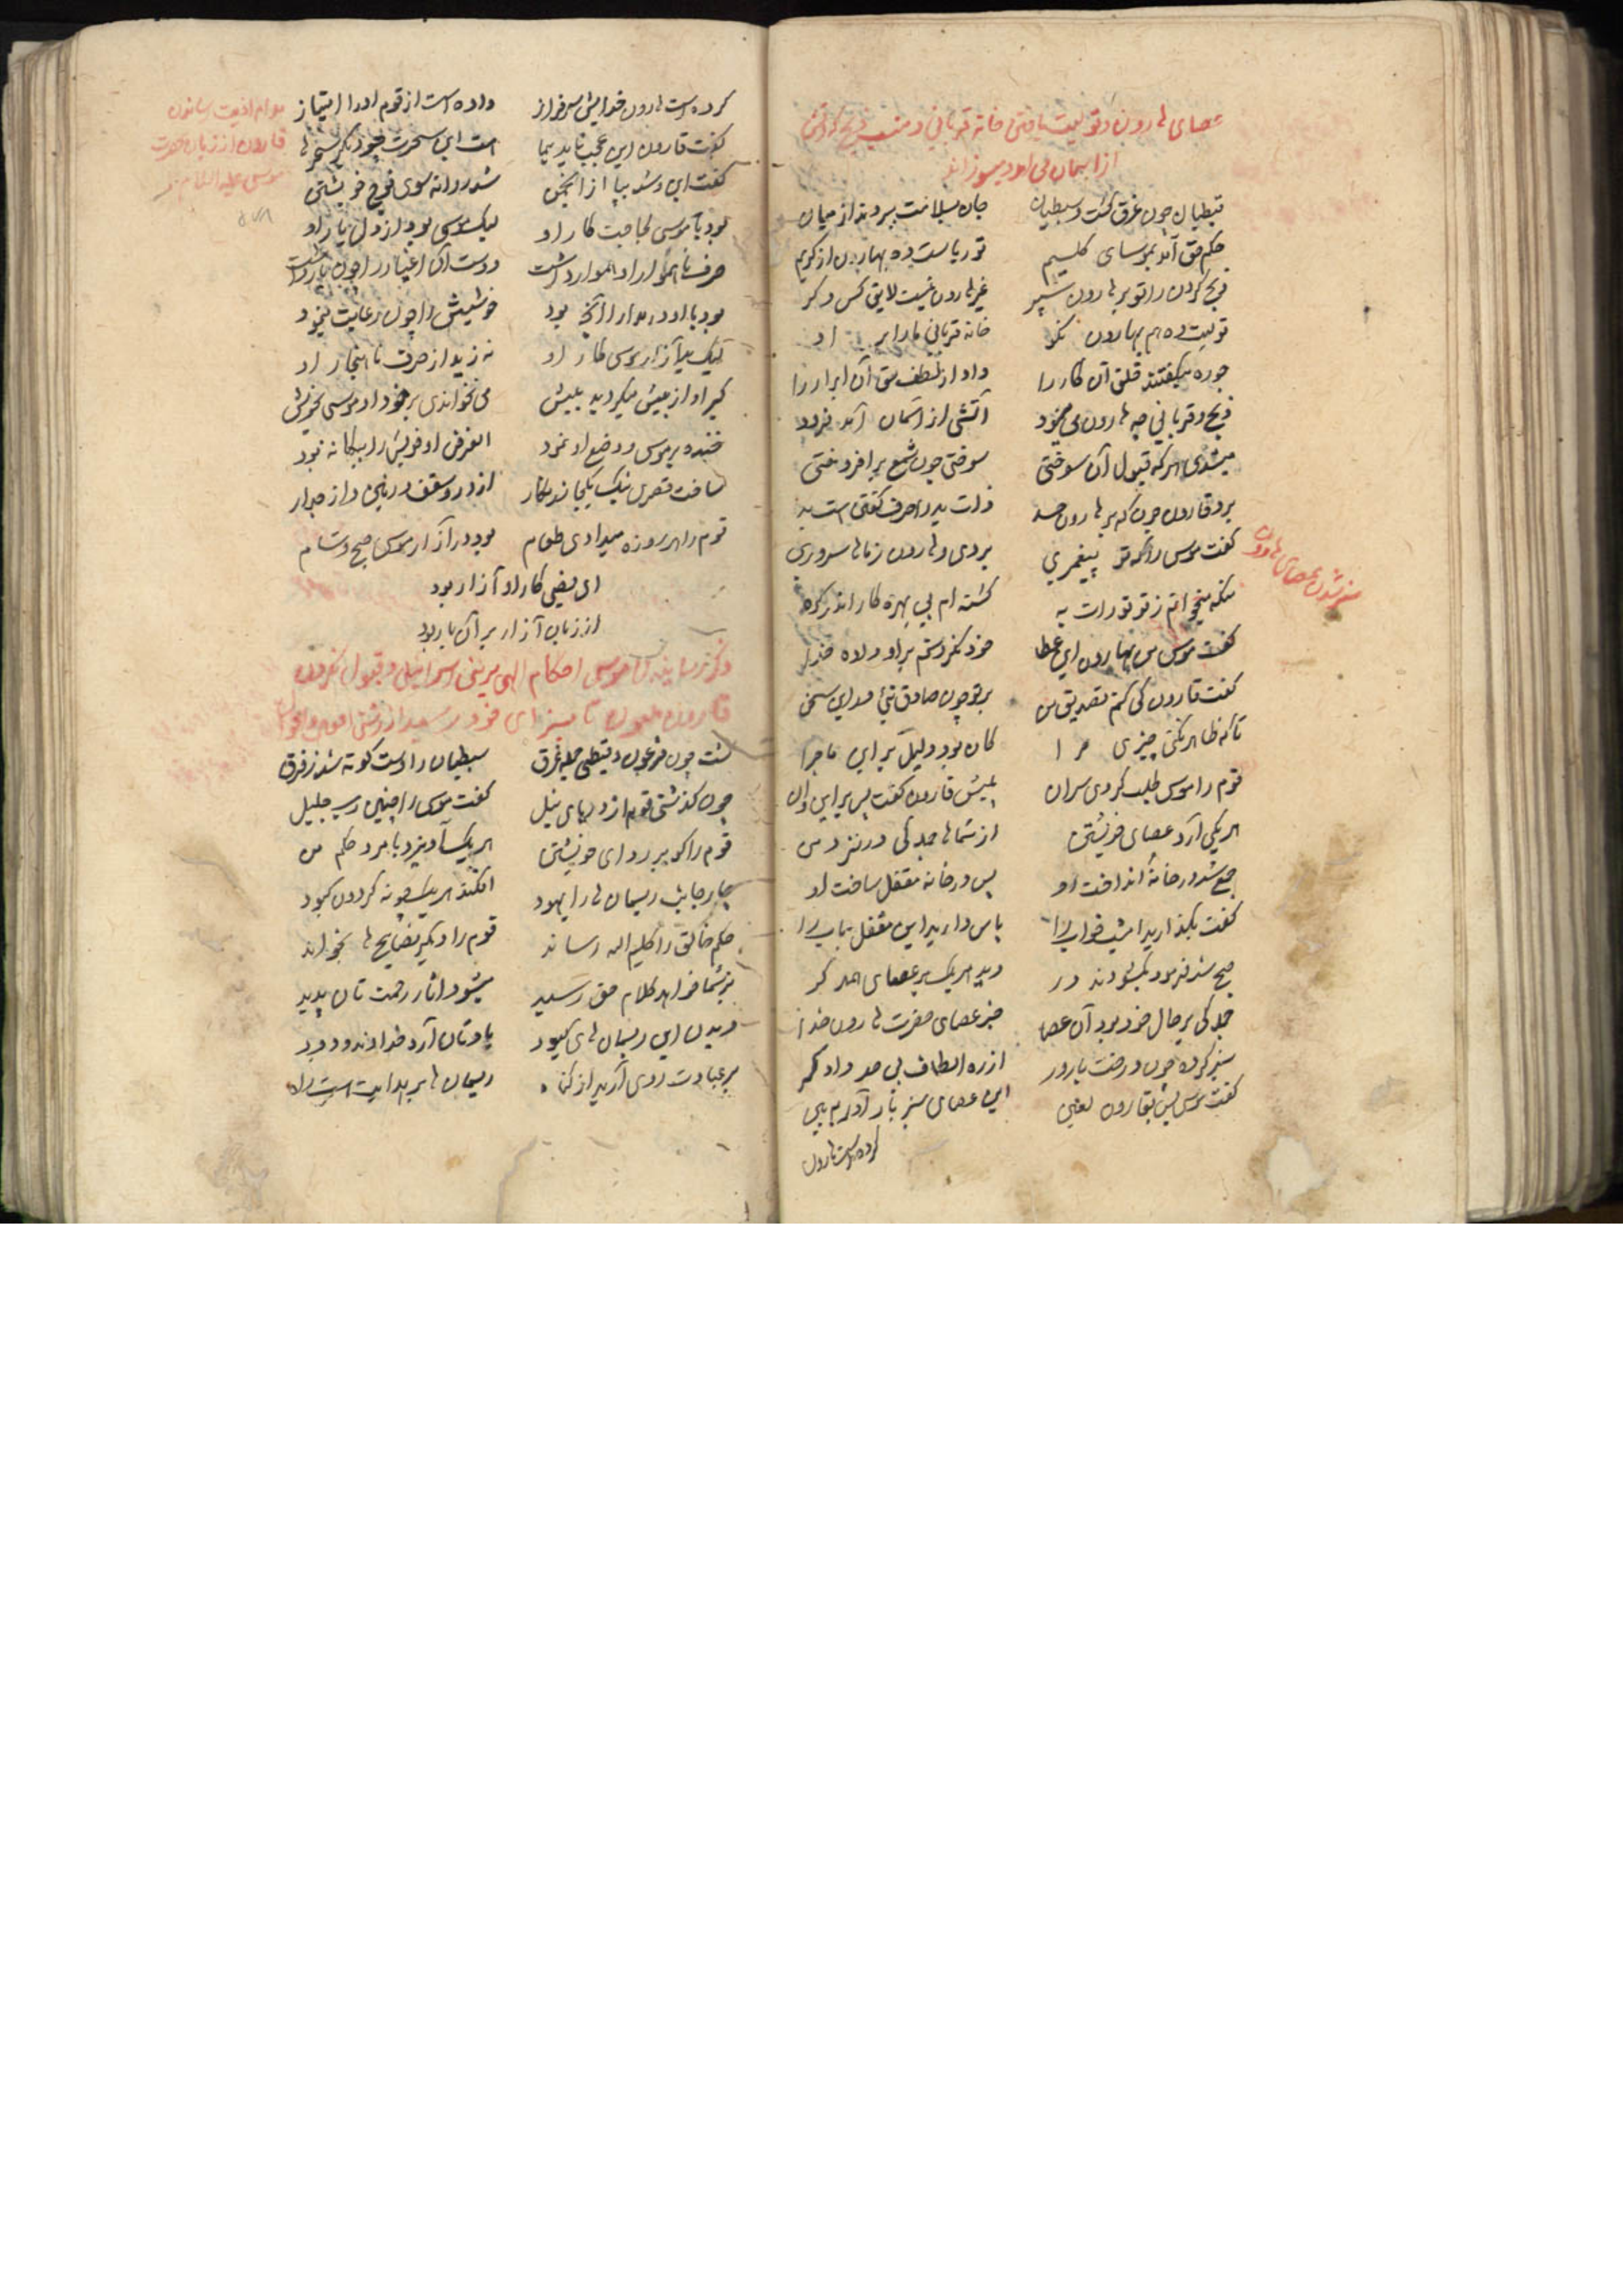 عصای هارون و تولیت یافتن خانه قربانی و منصب ذبح که آتش
از آسمان می آمد و میسوزاند
قبطیان چون غرق گشت و سبطیان جان سلامت ببردند از میان
حکم حق آمد بموسای کلیم تو ریاست ده بهارون از کریم
ذبح کردن را تو بر هارون سپر غیر هارون نیست لایق کس دگر
تولیت ده هم بهارون نکو خانه قربانی ما را بر او
داد از لطف حق آن ابرار را
ذبح و قربانی چه هارون می نمود آتشی از آسمان آمد فرود
میشدی هر که قبول آن سوختی سوختی چون شمع بر افروختی
برد قارون چون که بر هارون حسد
گفت موسی را که تو پیغمبری بردی و هارون ز ما ها سروری
سبز شدن عصای هارون
منکه میخوانم ز تو تورات به گشته ام بی بهره کار
گفت موسی من بهارون این عطا خود نکردستم بر او داده خدا
گفت قارون کی کنم تصدیق من بر تو چون صادق نئی در این سخن
تا که ظاهر نکنی چیزی مرا کان بود دلیل بر این ماجرا
قوم را موسی طلب کردی سران پیش قارون گفت پس بر این و آن
هر یکی آرد عصای خویشتن از شما ها جملگی در نزد من
جمع شد در خانه انداخت او پس در خانه مقفل ساخت او
گفت بگذارید امشب خواب را پاس دارید این مقفل باب را
صبح شد فرمود بگشودند در دید هر یک بر عصای خود نگر
جملگی بر حال خود بود آن عصا جز عصای حضرت هارون خدا
سبز کرده چون درخت بارور از ره الطاف بی حد دادگر
گفت موسی پس بقارون لعین این عصای سبز بار آور ببین
کرده است هارون
کرده است هارون خدایش سرفراز داده است از قوم او را امتیاز
گفت قارون این عجب ناید بما هست این سحرت چو دیگر سحر ها
گفت این و شد بپا از انجمن شد روانه سوی فوج خویشتن
مدام اذیت رساندن
قارون از زبان حضرت
موسی علیه السلام
بود با موسی لجاجت کار او لیک موسی بود از دل یار او
حرف ناهموار او هموار داشت دوست آن اغیار را چون یار داشت
بود با او در مدارا آنچه بود خویشیش را چون رعایت نمود
لیک بد آزار موسی کار او نه زید از حرف ناهنجار او
کبر او از پیش میگردید بیش می نخواندی بر خود او موسی بخویش
خنده بر موسی و وضع او نمود الغرض او خویش را بیگانه نبود
ساخت قصری از در و سقف و زمین و از جدار
قوم را هر روزه میدادی طعام بود در آزار موسی صبح و شام
ای فیضی کار او آزار بود
از زبان آزار بر آن یار بود
ذکر رسانیدن موسی احکام الهی بر بنی اسرائیل و قبول نکردن
قارون ملعون تا بسزای خود رسید
گشت چون فرعون و قبطی جمله غرق سبطیان را دست کوته شد ز فرق
چون گذشتی قوم از دریای نیل گفت موسی را چنین رب جلیل
قوم را گو بر ردای خویشتن هر یک آویزد بامر و حکم من
چار جانب ریسمان ها را یهود افکند هر یک چونه گردون کبود
حکم خالق را کلیم الله رساند قوم را دیگر نصایح ها بخواند
بر شما خواهد کلام حق رسید میشود آثار رحمت تان پدید
دیدن این ریسمان های کبود یادتان آرد خداوند ودود
بر عبادت روی آرید از گناه ریسمان ها بر هدایت است راه